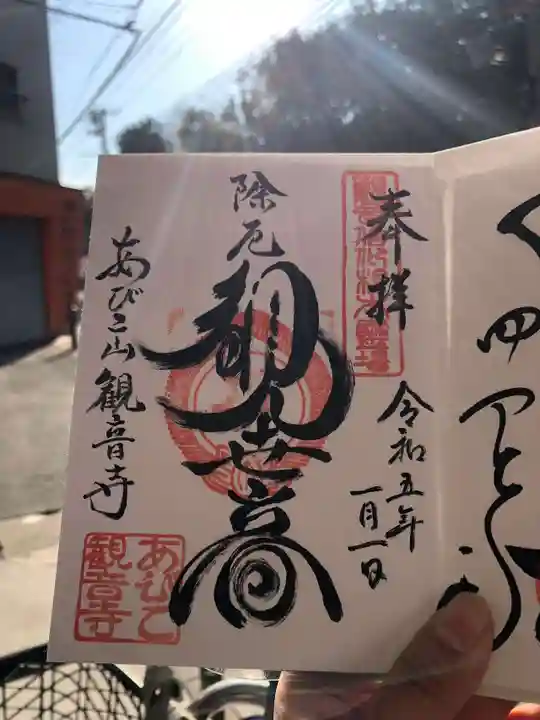 奉拝
令和五年
一月一日
除厄
観世音
あびこ山観音寺
あびこ
観音寺